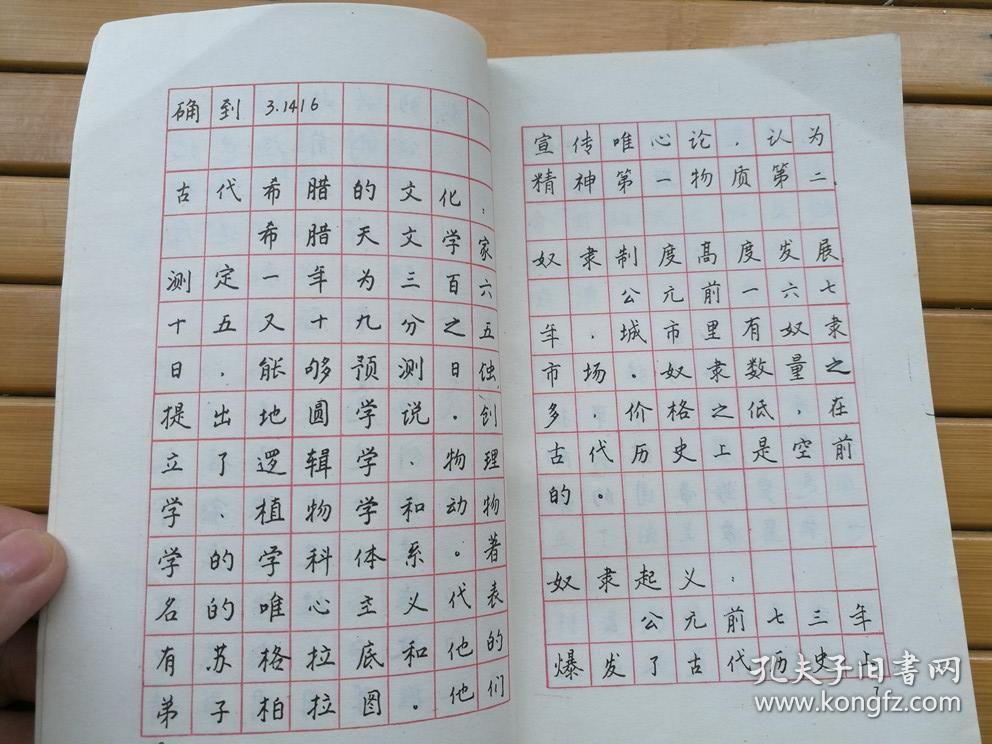 确到3.1416
古代希腊的文化：
希腊的天文学家
测定一年为三百六
十五又十九分之五
日，能够预测日蚀，
提出地圆学说。创
立了逻辑学、物理
学、植物学和动物
学的学科体系。著
名的唯心主义代表
有苏格拉底和他的
弟子柏拉图。他们
宣传唯心论，认为
精神第一物质第二。
奴隶制度高度发展
公元前一六七
年，城市里有奴隶
市场。奴隶数量之
多，价格之低，在
古代历史上是空前
的。
奴隶起义：
公元前七三年
爆发了古代历史上
7
孔夫子旧书网
www.kongfz.com